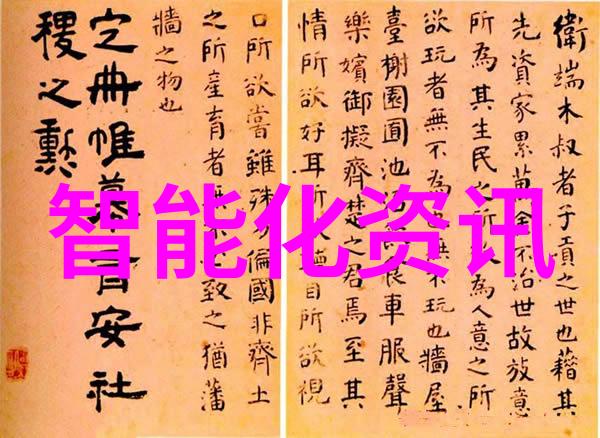 衛端木叔者子貢之世也藉其
先資家累萬金不治世故放意
所為其生民之所為人意之所
欲玩者無不為也無不玩也牆屋
臺榭園囿池沼車服聲
樂嬪御擬齊楚之君焉至其
情所欲好耳所聽目所欲視
口所欲嘗雖殊方偏國非齊土
之所產育者無不致之猶藩
牆之物也
定冊帷幕有安社
稷之勳
智能化资讯